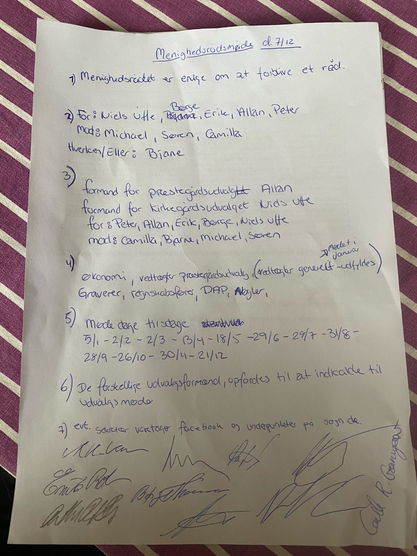 Menighedsrådsmøde d. 7/12
1) Menighedsrådet er enige om at fortsætte et råd.
Børge
2) For: Niels Uffe, Erik, Allan, Peter
mod: Michael, Søren, Camilla
Hverken/Eller: Bjarne
3)
formand for præstegårdsudvalget Allan
formand for kirkegårdsudvalget Niels Uffe
for: Peter, Allan, Erik, Børge, Niels Uffe
mod: Camilla, Bjarne, Michael, Søren
4)
økonomi, vedtægter præstegårdsudvalg, (vedtægter
Graverer, regnskabsfører, DAP, Nøgler,
5) Møde dage tirsdage
5/1 - 2/2 - 2/3 - 13/4 - 18/5 - 29/6 - 31/8 -
28/9 - 26/10 - 30/11 - 21/12
6) De forskellige udvalgsformænd, opfordres til at indkalde til
udvalgsmøde
7) evt. varetager facebook og på sogn.dk